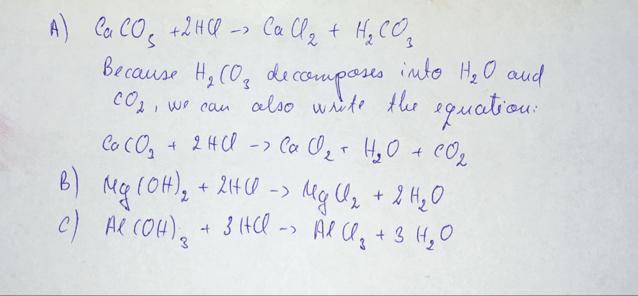 A) CaCO₃ + 2HCl -> CaCl₂ + H₂CO₃
Because H₂CO₃ decomposes into H₂O and
CO₂, we can also write the equation:
CaCO₃ + 2HCl -> CaCl₂ + H₂O + CO₂
B) Mg(OH)₂ + 2HCl -> MgCl₂ + 2H₂O
C) Al(OH)₃ + 3HCl -> AlCl₃ + 3H₂O